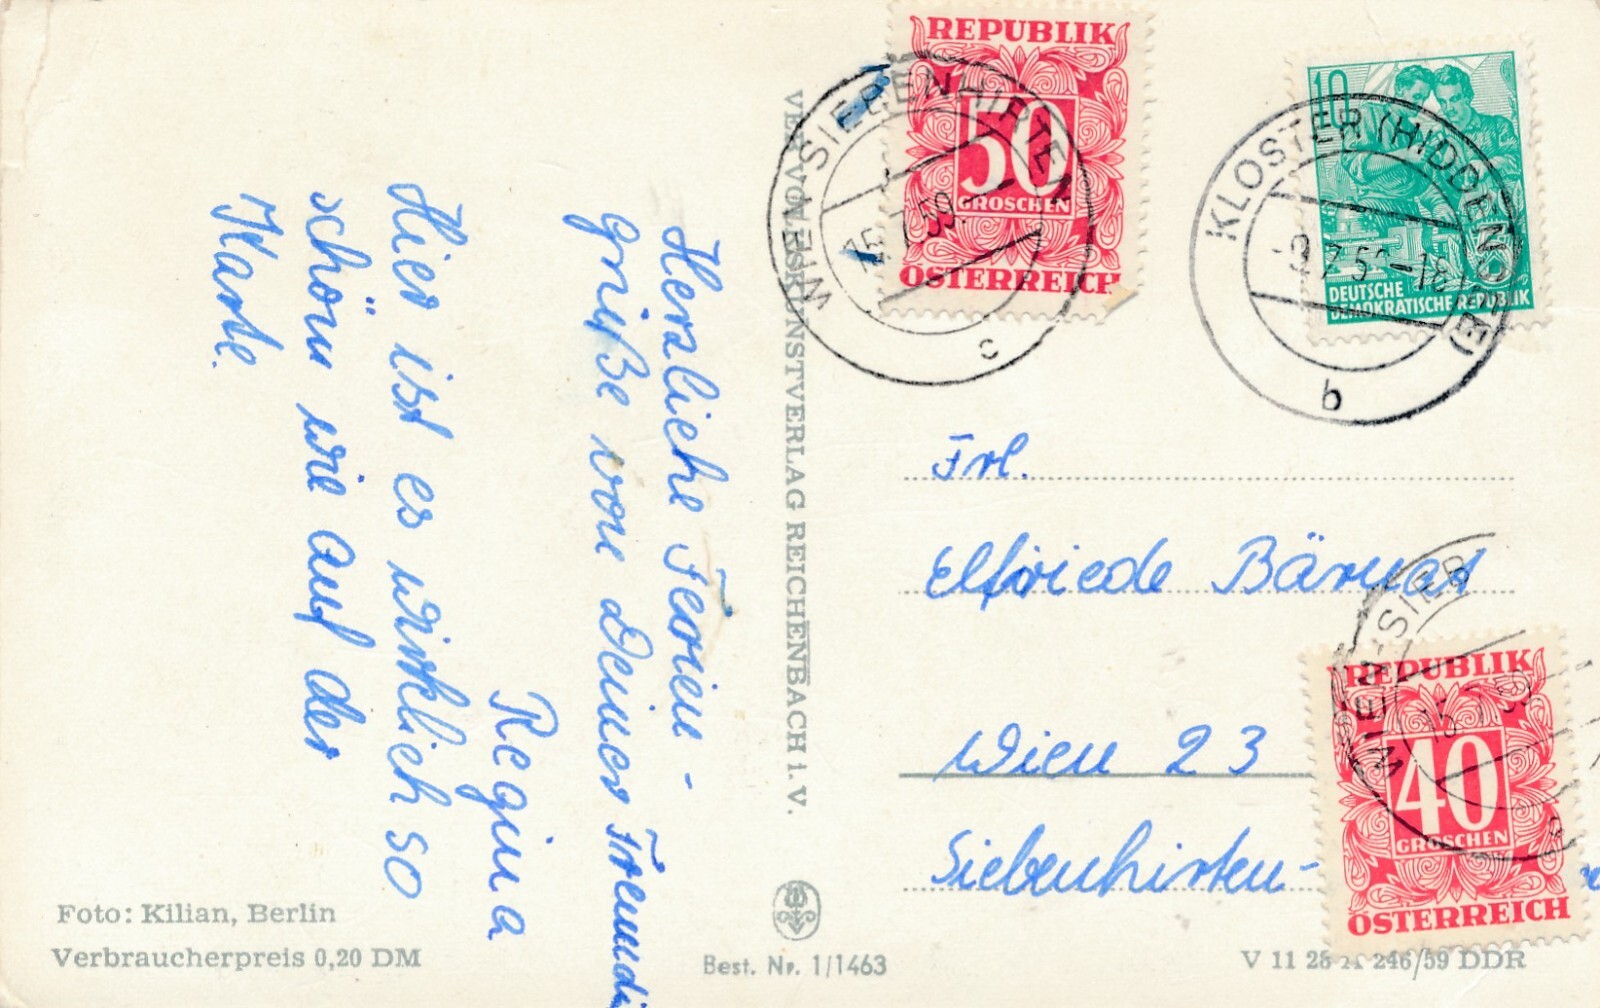 Herzliche Ferien-
grüße von Deiner Freundin
Regina
Hier ist es wirklich so
schön wie auf der
Karte.
VEB VOLKSKUNSTVERLAG REICHENBACH i. V.
Foto: Kilian, Berlin
Verbraucherpreis 0,20 DM
Best. Nr. 1/1463
REPUBLIK
50
GROSCHEN
ÖSTERREICH
WIEN-SIEBENHIRTEN
15. 7. 59.
c
10
DEUTSCHE
DEMOKRATISCHE REPUBLIK
KLOSTER (HIDDENSEE)
-9.7.59-18
b
Frl.
Elfriede
Wien 23
Siebenhirten-
WIEN-SIEB
15. 7. 59
REPUBLIK
40
GROSCHEN
ÖSTERREICH
V 11 28 A 246/59 DDR